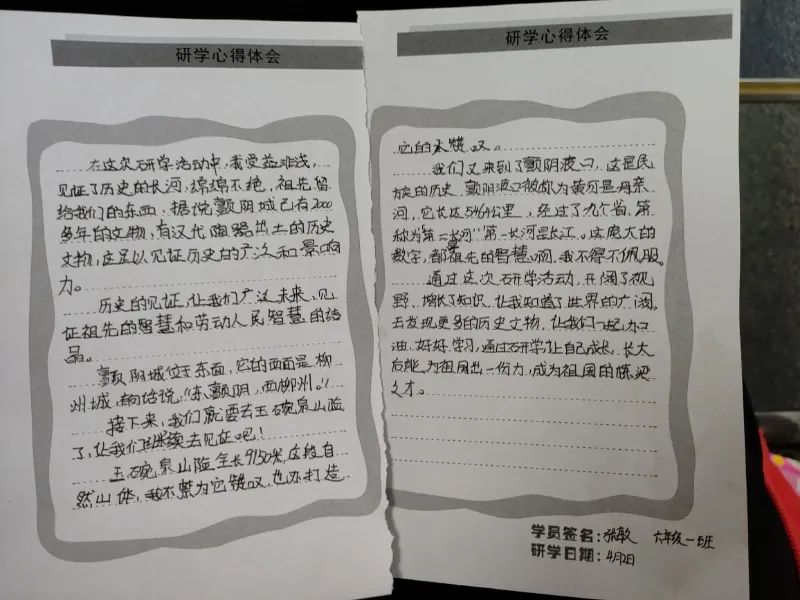 研学心得体会
在这次研学活动中，我受益非浅，
见证了历史的长河，绵绵不绝，祖先留
给我们的东西，据说颤阴城已有2000
多年的文物，有汉代陶器出土的历史
文物，这足以见证历史的广泛和影响
力。
历史的见证，让我们广泛未来，见
证祖先的智慧和劳动人民智慧的结
晶。
颤阴城位于东面，它的西面是柳
州城，俗话说：“东颤阴，西柳州。”
接下来，我们就要去玉碗泉山险
了，让我们继续去见证吧！
玉碗泉山险全长9150米，这段自
然山体，我不禁为它赞叹，也为打造
研学心得体会
它的人赞叹。
我们又来到了颤阴渡口，这是民
族的历史，颤阴渡口被称为黄河是母亲
河，它长达5464公里，经过了九个省，第
称为第二长河“第一长河是长江。这庞大的
数字，都是祖先的智慧啊，我不得不佩服。
通过这次研学活动，开阔了视
野，增长了知识，让我知道了世界的广阔，
去发现更多的历史文物，让我们一起加
油，好好学习，通过研学让自己成长，长大
后能为祖国出一份力，成为祖国的栋梁
之才。
学员签名：张敏 六年级一班
研学日期：4月2日